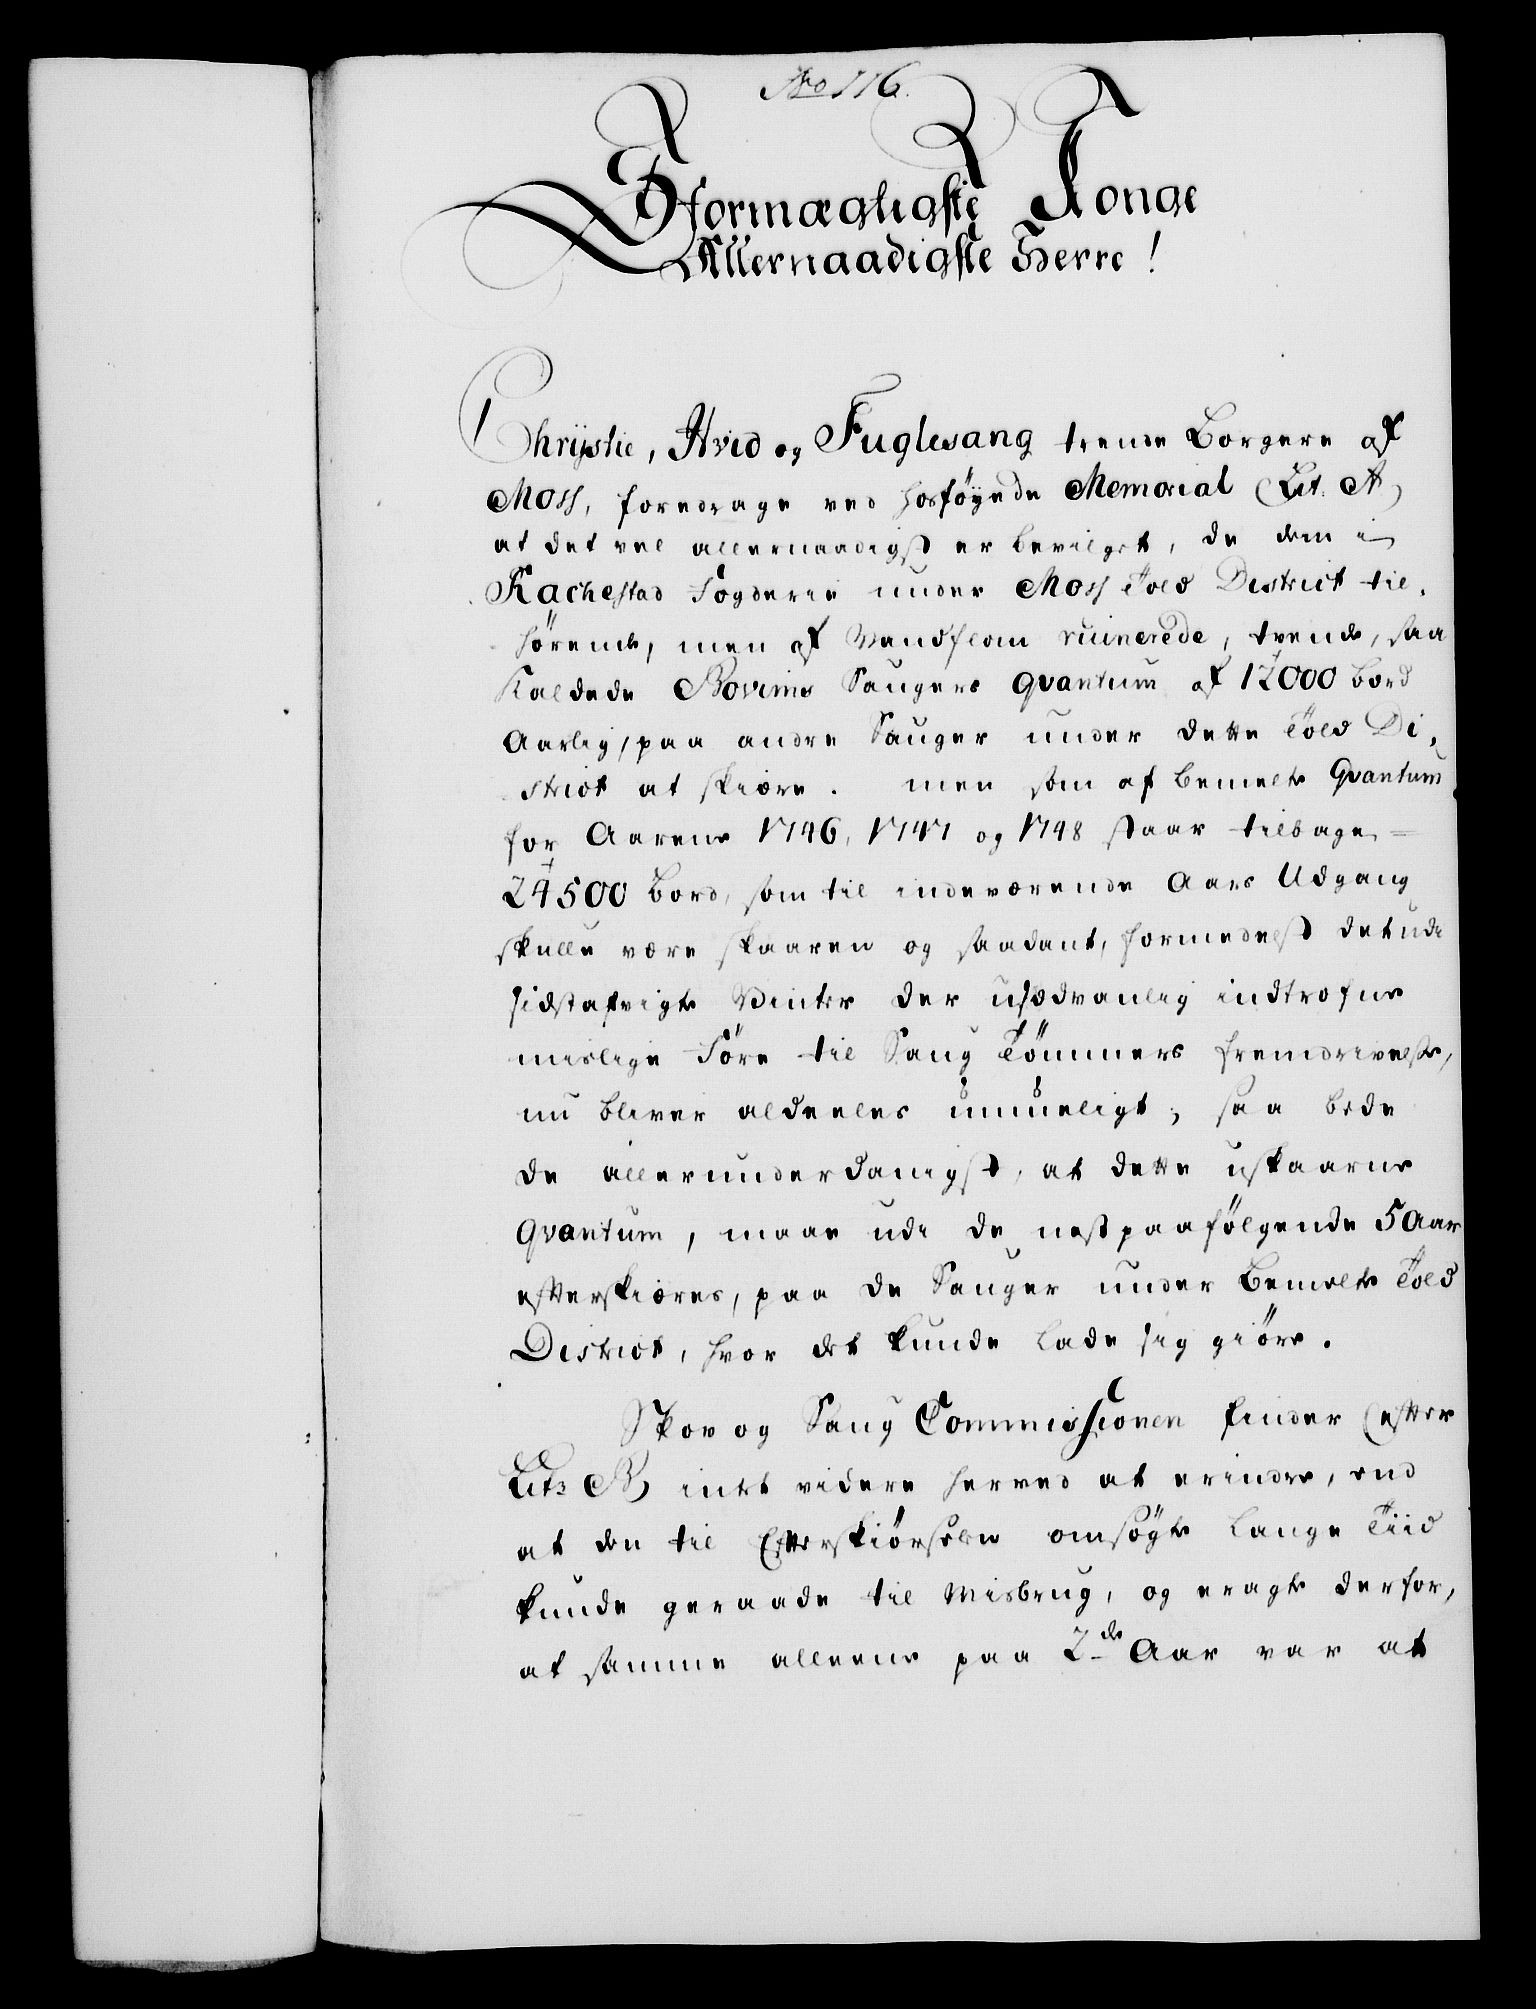 No 116.
Stormægtigste Konge
Allernaadigste Herre!
Chrystie, Hvid og Fuglesang trende Borgere af
Moss, foredrage ved hosföyede Memorial (Lit. A)
at det vel allernaadigst er bevilget, de dem i
Rachestad Fogderie under Moss Told District til,
hörende, men af Vandflom ruinerede, trende, saa
kaldede Bovims Saugers qvantum af 12000 bord
Aarlig, paa andre Sauger under dette Told Di,
strict at skiære. men som af bemelte Qvantum
for Aarene 1746, 1747 og 1748 staar tilbage =
24500 Bord, som til indeværende Aars Udgang
skulle være skaaren og saadant, formedelst det udi
sidstafvigte Vinter der usædvanlig indtrofne
mislige Före til Saug Tömmers fremdrivelse,
nu bliver aldeeles umueligt; saa bede
de allerunderdanigst, at dette uskaarne
Qvantum, maae udi de nestpaafölgende 5 Aar
efterskiæres, paa de Sauger under bemelte Told
District, hvor det kunde lade sig giöre.
Skov og Saug Commissionen finder (efter
Litr B) intet videre herved at erindre, end
at den til Efterskiörselen omsögte lange Tiid
kunde geraade til Misbrug, og eragte derfor,
at samme alleene paa 2de Aar var at